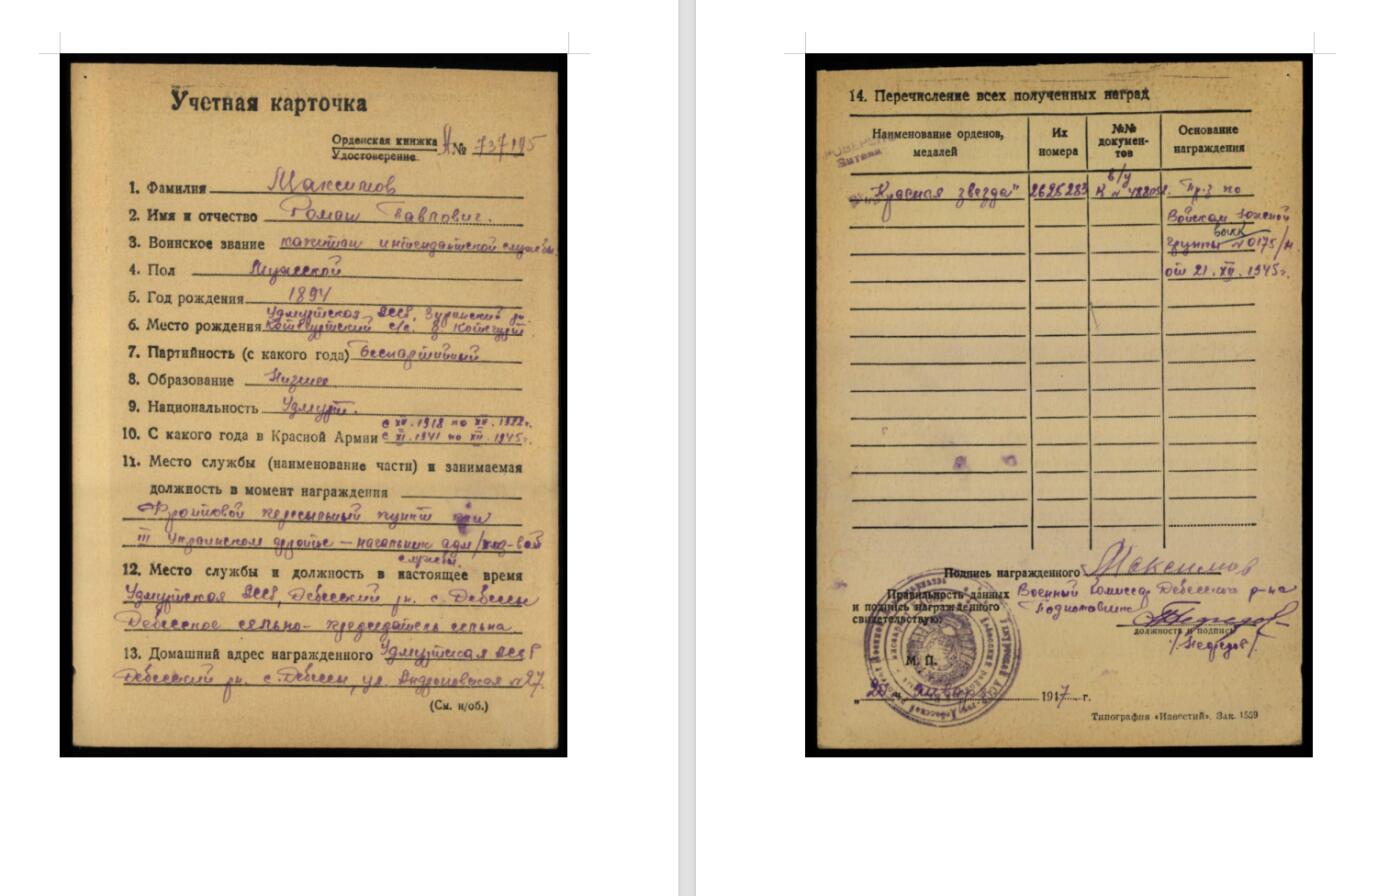 Учетная карточка
Орденская книжка А№ 737195
Удостоверение
1. Фамилия Максимов
2. Имя и отчество Роман Павлович.
3. Воинское звание капитан интендантской службы
4. Пол Мужской
5. Год рождения 1894
Удмуртская АССР, Зуринский рн.
6. Место рождения с/с. д
7. Партийность (с какого года) беспартийный
8. Образование Низшее
9. Национальность Удмурт.
с XII. 1918 по XII. 1922г.
10. С какого года в Красной Армии с XI. 1941 по XII. 1945г.
11. Место службы (наименование части) и занимаемая
должность в момент награждения
Фронтовой пересыльный пункт при
III Украинском фронте — начальник адм/хоз-вой
службы.
12. Место службы и должность в настоящее время
Удмуртская АССР, Дебесский рн. с. Дебессы
Дебесское сельпо- председатель сельпо.
13. Домашний адрес награжденного Удмуртская АССР
Дебесский рн. с. Дебессы, ул. Андроновская №27.
(См. н/об.)
14. Перечисление всех полученных наград
Наименование орденов, медалей
Их номера
№№ документов
Основание награждения
"Красная звезда" 2625283 в/у Пр-з по
Войскам Южной
группы войск №0175/н.
от 21. XII. 1945г.
Подпись награжденного Максимов
Правильность данных Военный Комиссар Дебесского р-на
и подпись награжденного Подполковник
свидетельствую:
должность и подпись
/Нефедов/.
М. П.
" января 1947 г.
Типография «Известий». Зак. 1559